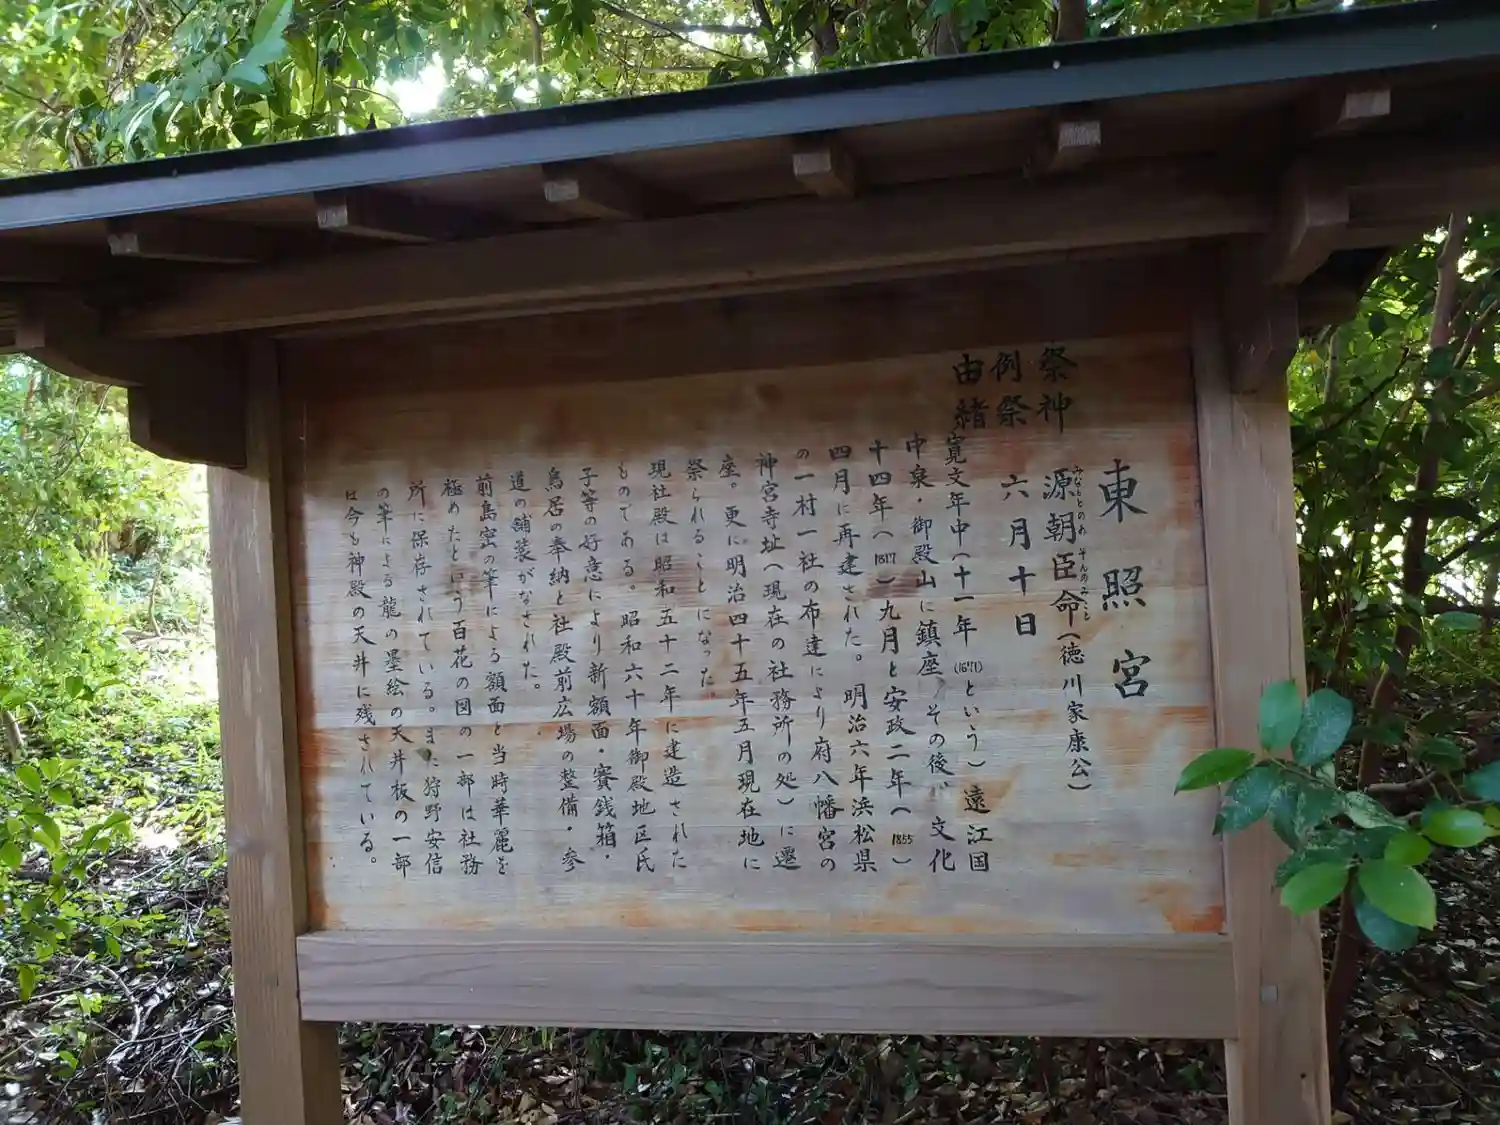 東照宮
祭神 源朝臣命(徳川家康公)
みなもとのあそんのみこと
例祭 六月十日
由緒 寛文年中(十一年(1671)という)遠江国
中泉・御殿山に鎮座、その後、文化
十四年(1817)九月と安政二年(1855)
四月に再建された。明治六年浜松県
の一村一社の布達により府八幡宮の
神宮寺址(現在の社務所の処)に遷
座。更に明治四十五年五月現在地に
祭られることになった。
現社殿は昭和五十二年に建造された
ものである。昭和六十年御殿地区氏
子等の好意により新額面・賽銭箱・
鳥居の奉納と社殿前広場の整備・参
道の舗装がなされた。
前島密の筆による額面と当時華麗を
極めたという百花の図の一部は社務
所に保存されている。また狩野安信
の筆による龍の墨絵の天井板の一部
は今も神殿の天井に残されている。